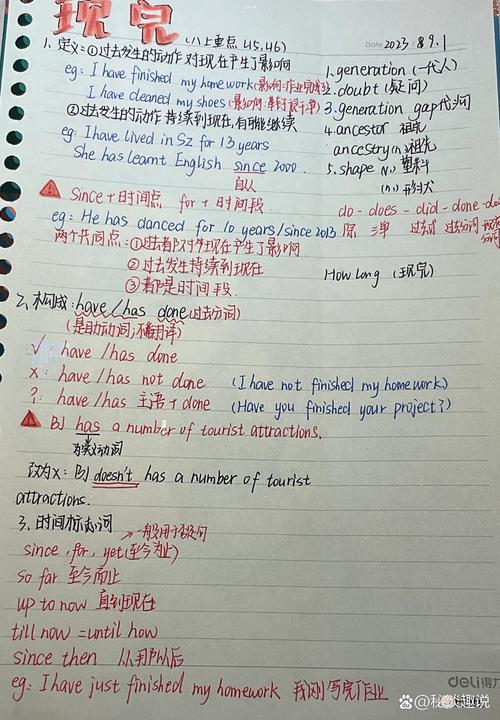 现完
(八上重点 U5,U6)
Date 2023.8.9.1
1. 定义=①过去发生的动作 对现在产生了影响
eg: I have finished my homework(影响:作业完成)
I have cleaned my shoes (影响:鞋子很干净)
②过去发生的动作 持续到现在,有可能继续
eg: I have lived in SZ for 13 years
She has learnt English since 2000.
自从
1. generation (一代人)
2. doubt (疑问)
3. generation gap代沟
4. ancestor 祖先
ancestry (n) 祖先
5. shape (v) 塑料
(n) 形状
Since + 时间点 for + 时间段
do - does - did - done - doi
eg: He has danced for 10 years/since 2013
原 三单 过去式 过去分词 现在分词
两个共同点:①过去都对现在产生了影响
②过去发生持续到现在
③都是时间段.
How long (现完)
2、构成:have/has done(过去分词)
(是助动词,不翻译)
√: have / has done
x: have / has not done (I have not finished my homework)
?: have / has 主语 + done (Have you finished your project?)
BJ has a number of tourist attractions.
为实义动词
改为x: BJ doesn't has a number of tourist
attractions.
3. 时间标志词
→一般用于疑问句
since, for, yet(至今为止)
so far 至今而止
up to now 直到现在
till now = until now
since then 从那以后
eg: I have just finished my homework 我刚写完作业
deli得力
@秘谈趣说